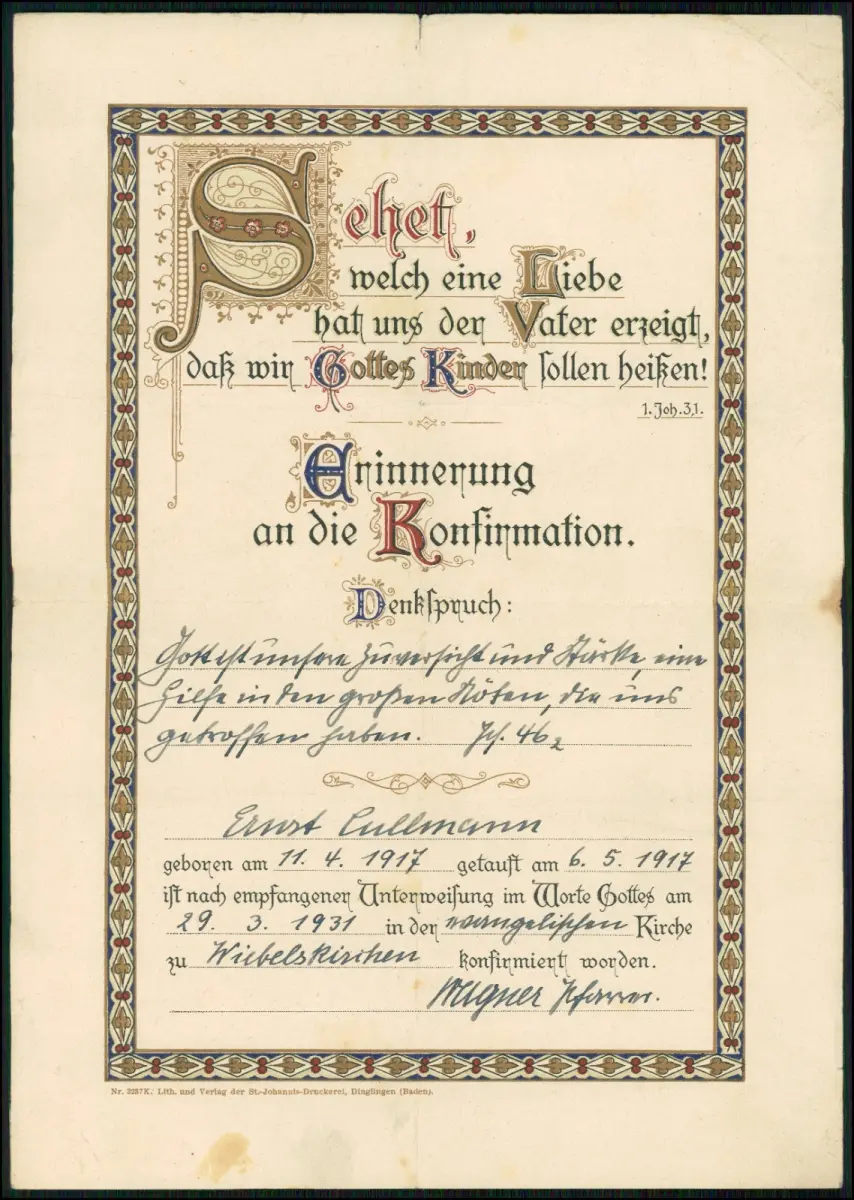 Sehet,
welch eine Liebe
hat uns der Vater erzeigt,
daß wir Gottes Kinder sollen heißen!
1. Joh. 3,1.
Erinnerung
an die Konfirmation.
Denkspruch:
Gott ist unsere Zuversicht und Stärke, eine
Hilfe in den großen Nöten, die uns
getroffen haben. Ps. 46 2
Ernst Cullmann
geboren am 11. 4. 1917 getauft am 6. 5. 1917
ist nach empfangener Unterweisung im Worte Gottes am
29. 3. 1931 in der evangelischen Kirche
zu Wiebelskirchen konfirmiert worden.
Wagner Pfarrer.
Nr. 3237K. Lith. und Verlag der St.-Johannis-Druckerei, Dinglingen (Baden).